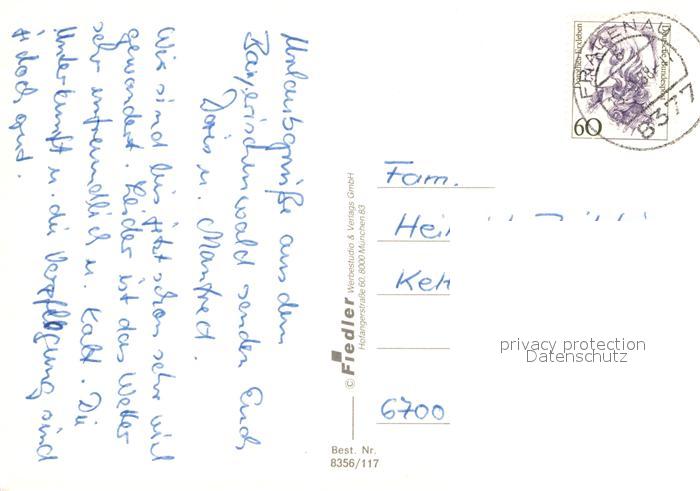 Urlaubsgrüße aus dem
Bayerischen Wald senden Euch
Doris u. Manfred.
Wir sind bis jetzt schon sehr viel
gewandert. Leider ist das Wetter
sehr unfreundlich u. kalt. Die
Unterkunft u. die Verpflegung sind
jedoch gut.
© Fiedler Werbestudio & Verlags GmbH
Hofangerstraße 60, 8000 München 83
Best. Nr.
8356/117
60
Dorothea Erxleben
Deutsche Bundespost
FRAUENAU
8377
Fam.
Hei
Keh
6700
privacy protection
Datenschutz